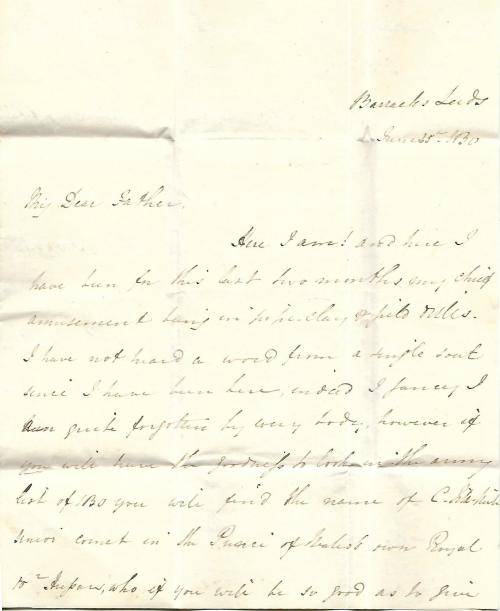 Barracks Leeds
June 25th 1830
My Dear Father.
Here I am! and here I
have been for this last two months my chief
amusement being in pipe-clay & field drills.
I have not heard a word from a single soul
since I have been here, indeed I fancy I
am quite forgotten by every body, however if
you will have the goodness to look in the army
list of 1830 you will find the name of C.
Junior cornet in the Prince of Wales's own Royal
Hussars, who if you will be so good as to give